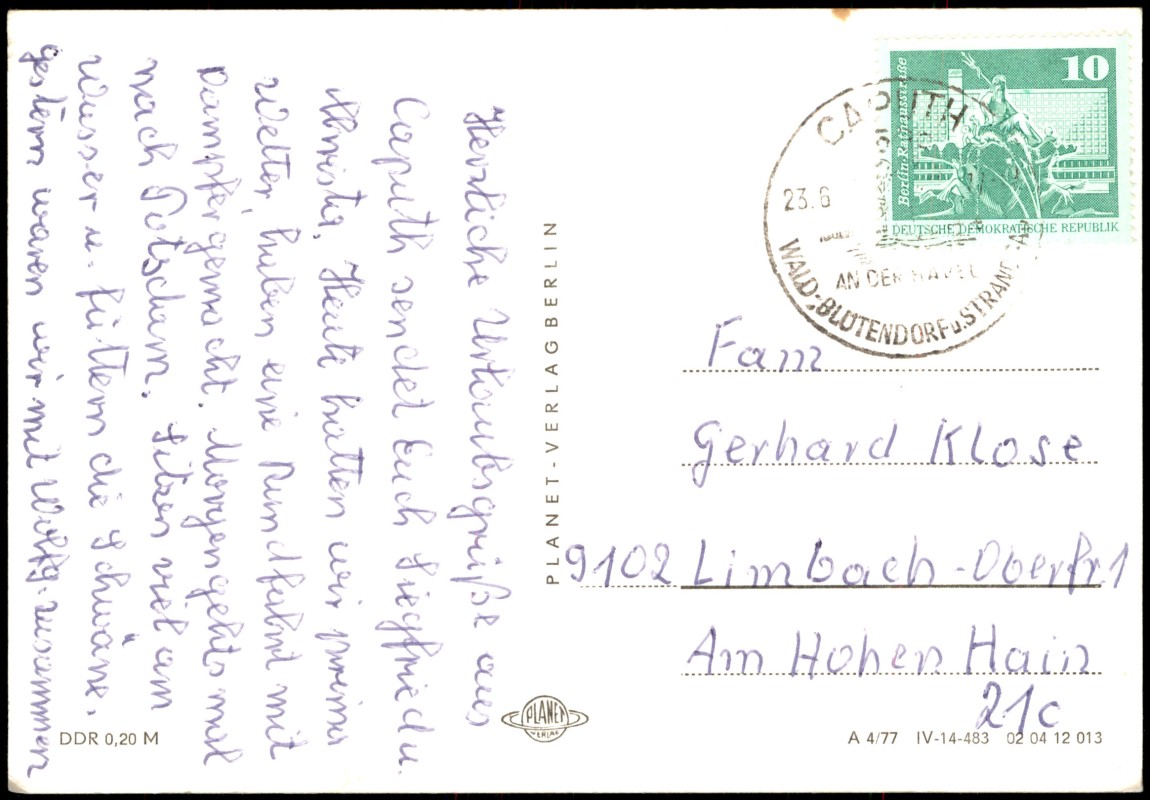 Herzliche Urlaubsgrüße aus
Caputh sendet Euch Siegfried u.
Christa. Heute hatten wir prima
Wetter, haben eine Rundfahrt mit
Dampfer gemacht. Morgen gehts mal
nach Potsdam. Sitzen viel am
Wasser u. füttern die Schwäne.
gestern waren wir mit zusammen
DDR 0,20 M
PLANET-VERLAG BERLIN
PLANET
VERLAG
10
Berlin-Rathausstraße
DEUTSCHE DEMOKRATISCHE REPUBLIK
CAPUTH
23.6
AN DER HAVEL
WALD-, BLÜTENDORF u. STRANDBAD
Fam
Gerhard Klose
9102 Limbach-Oberfr 1
Am Hohen Hain
21c
A 4/77 IV-14-483 02 04 12 013